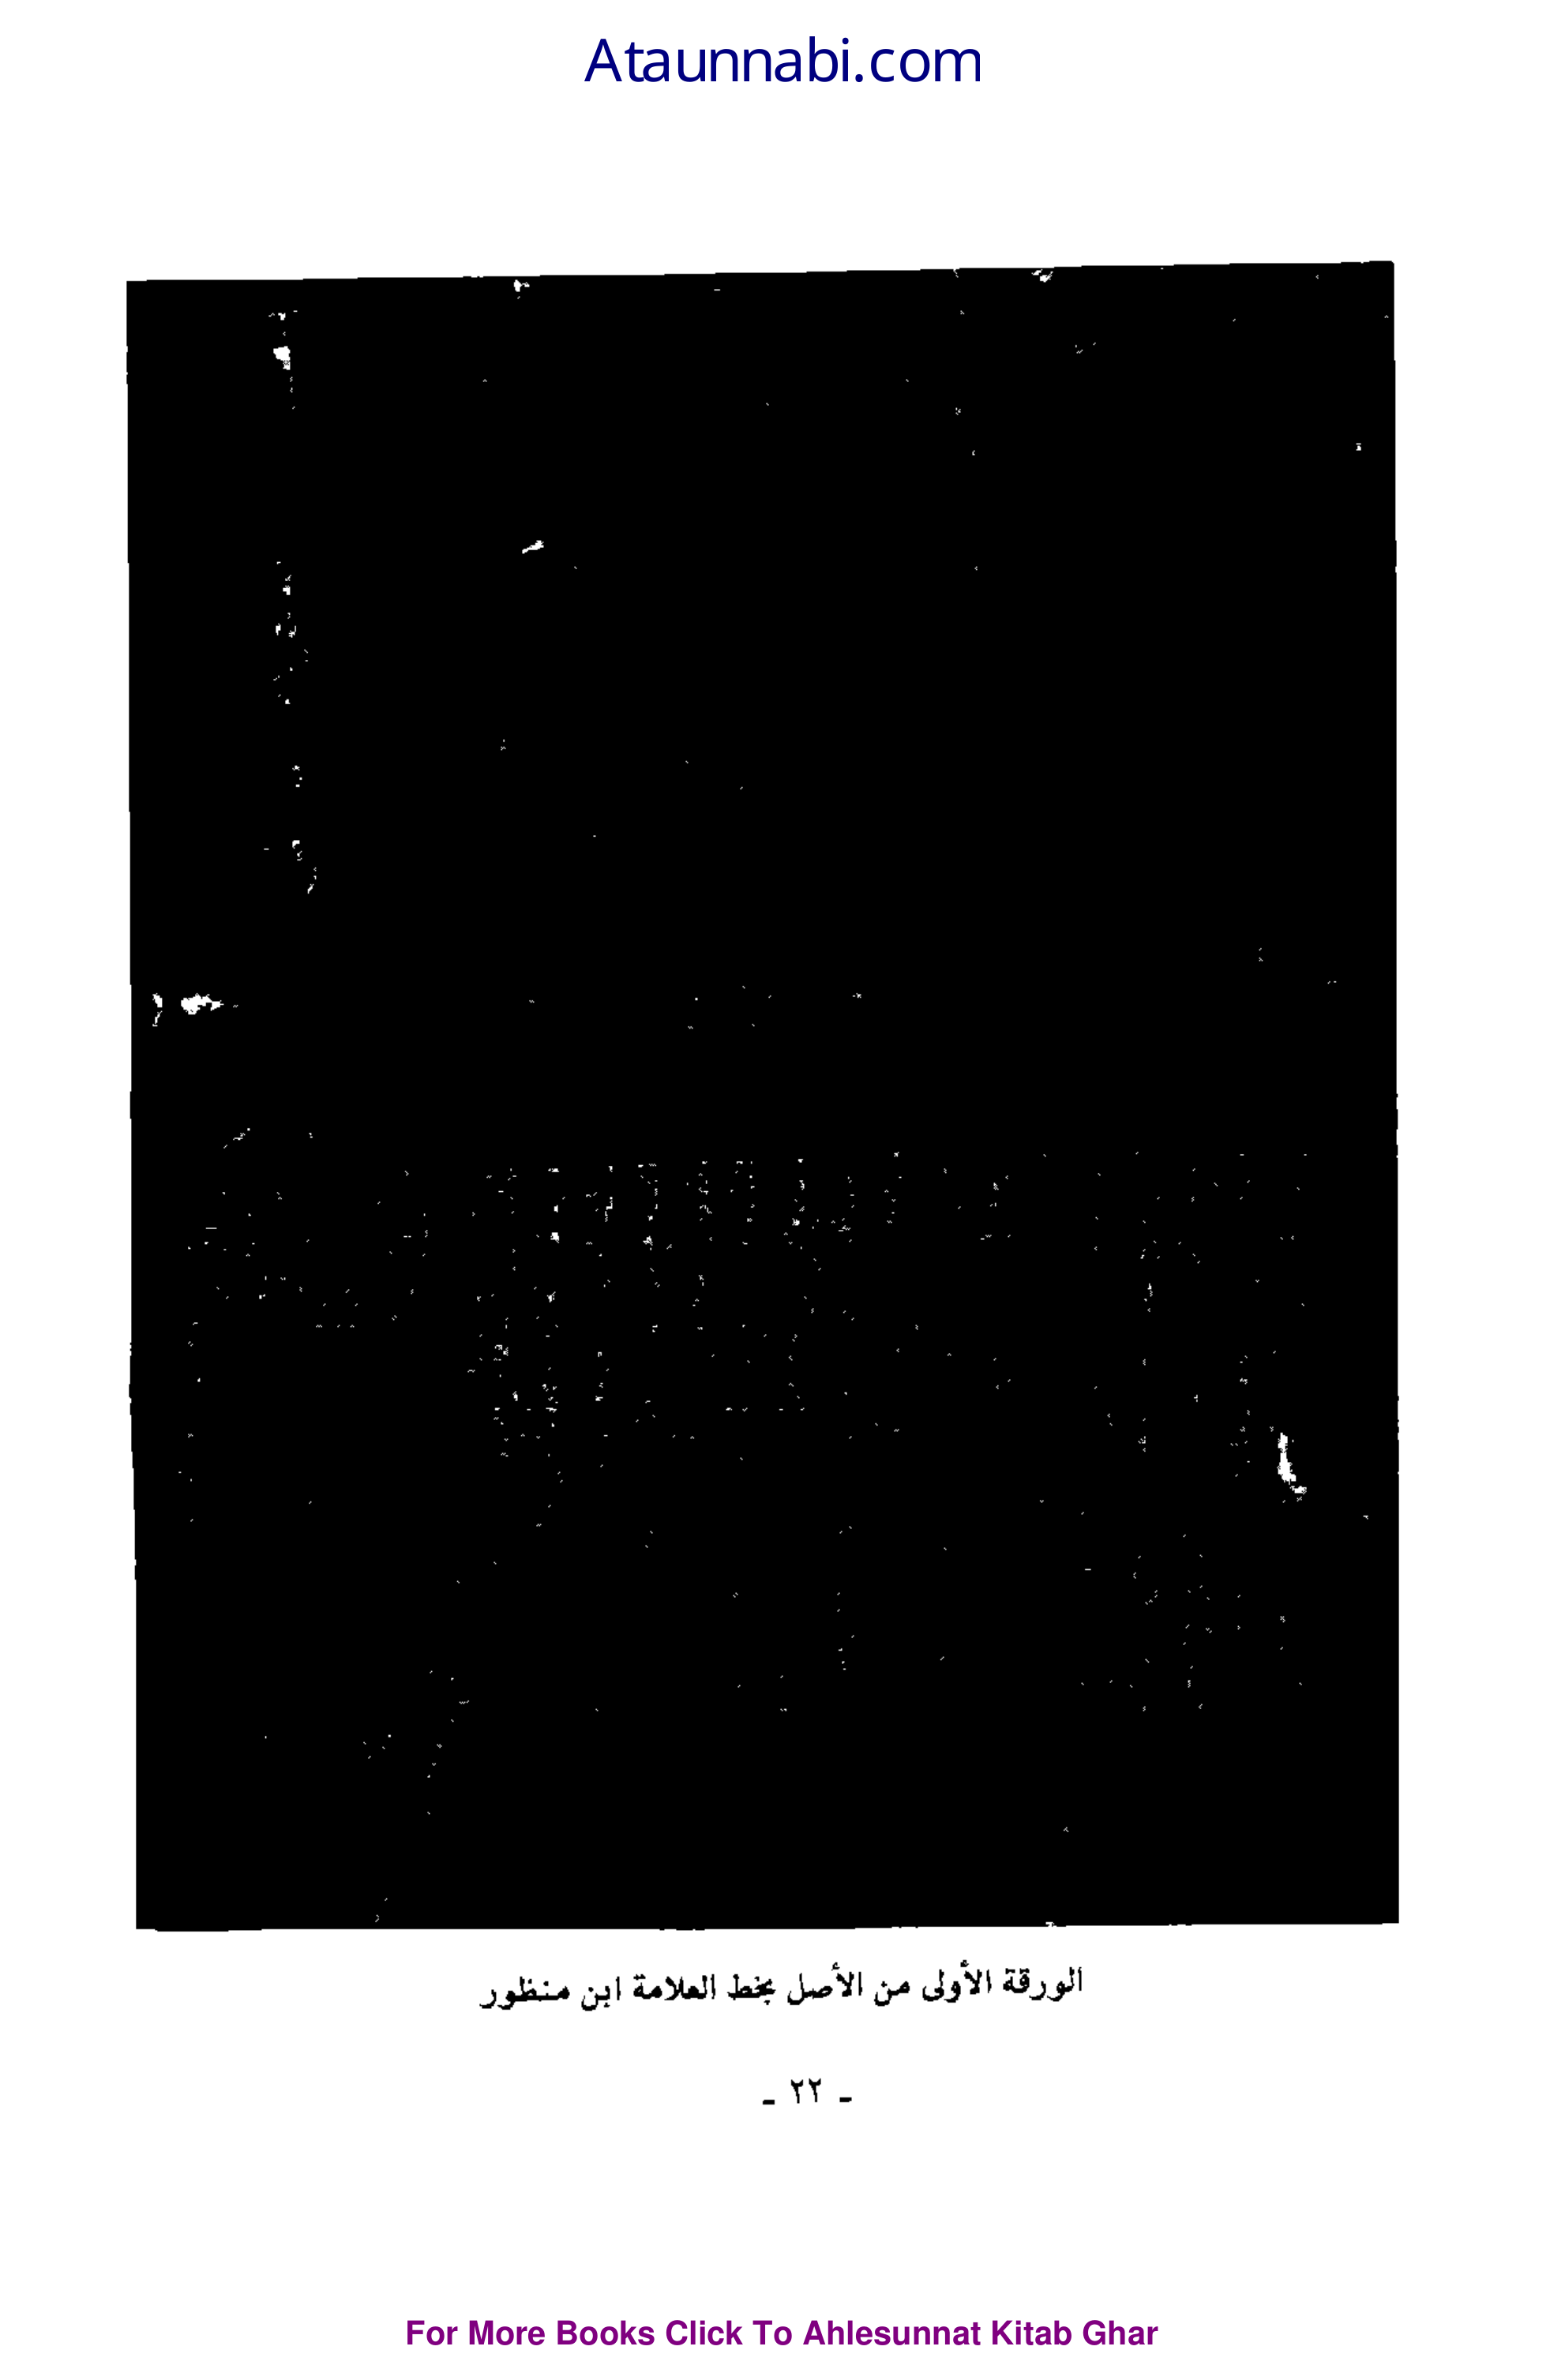 Ataunnabi.com
الورقة الأولى من الأصل بخط العلامة ابن منظور
ـ ٢٢ ـ
For More Books Click To Ahlesunnat Kitab Ghar